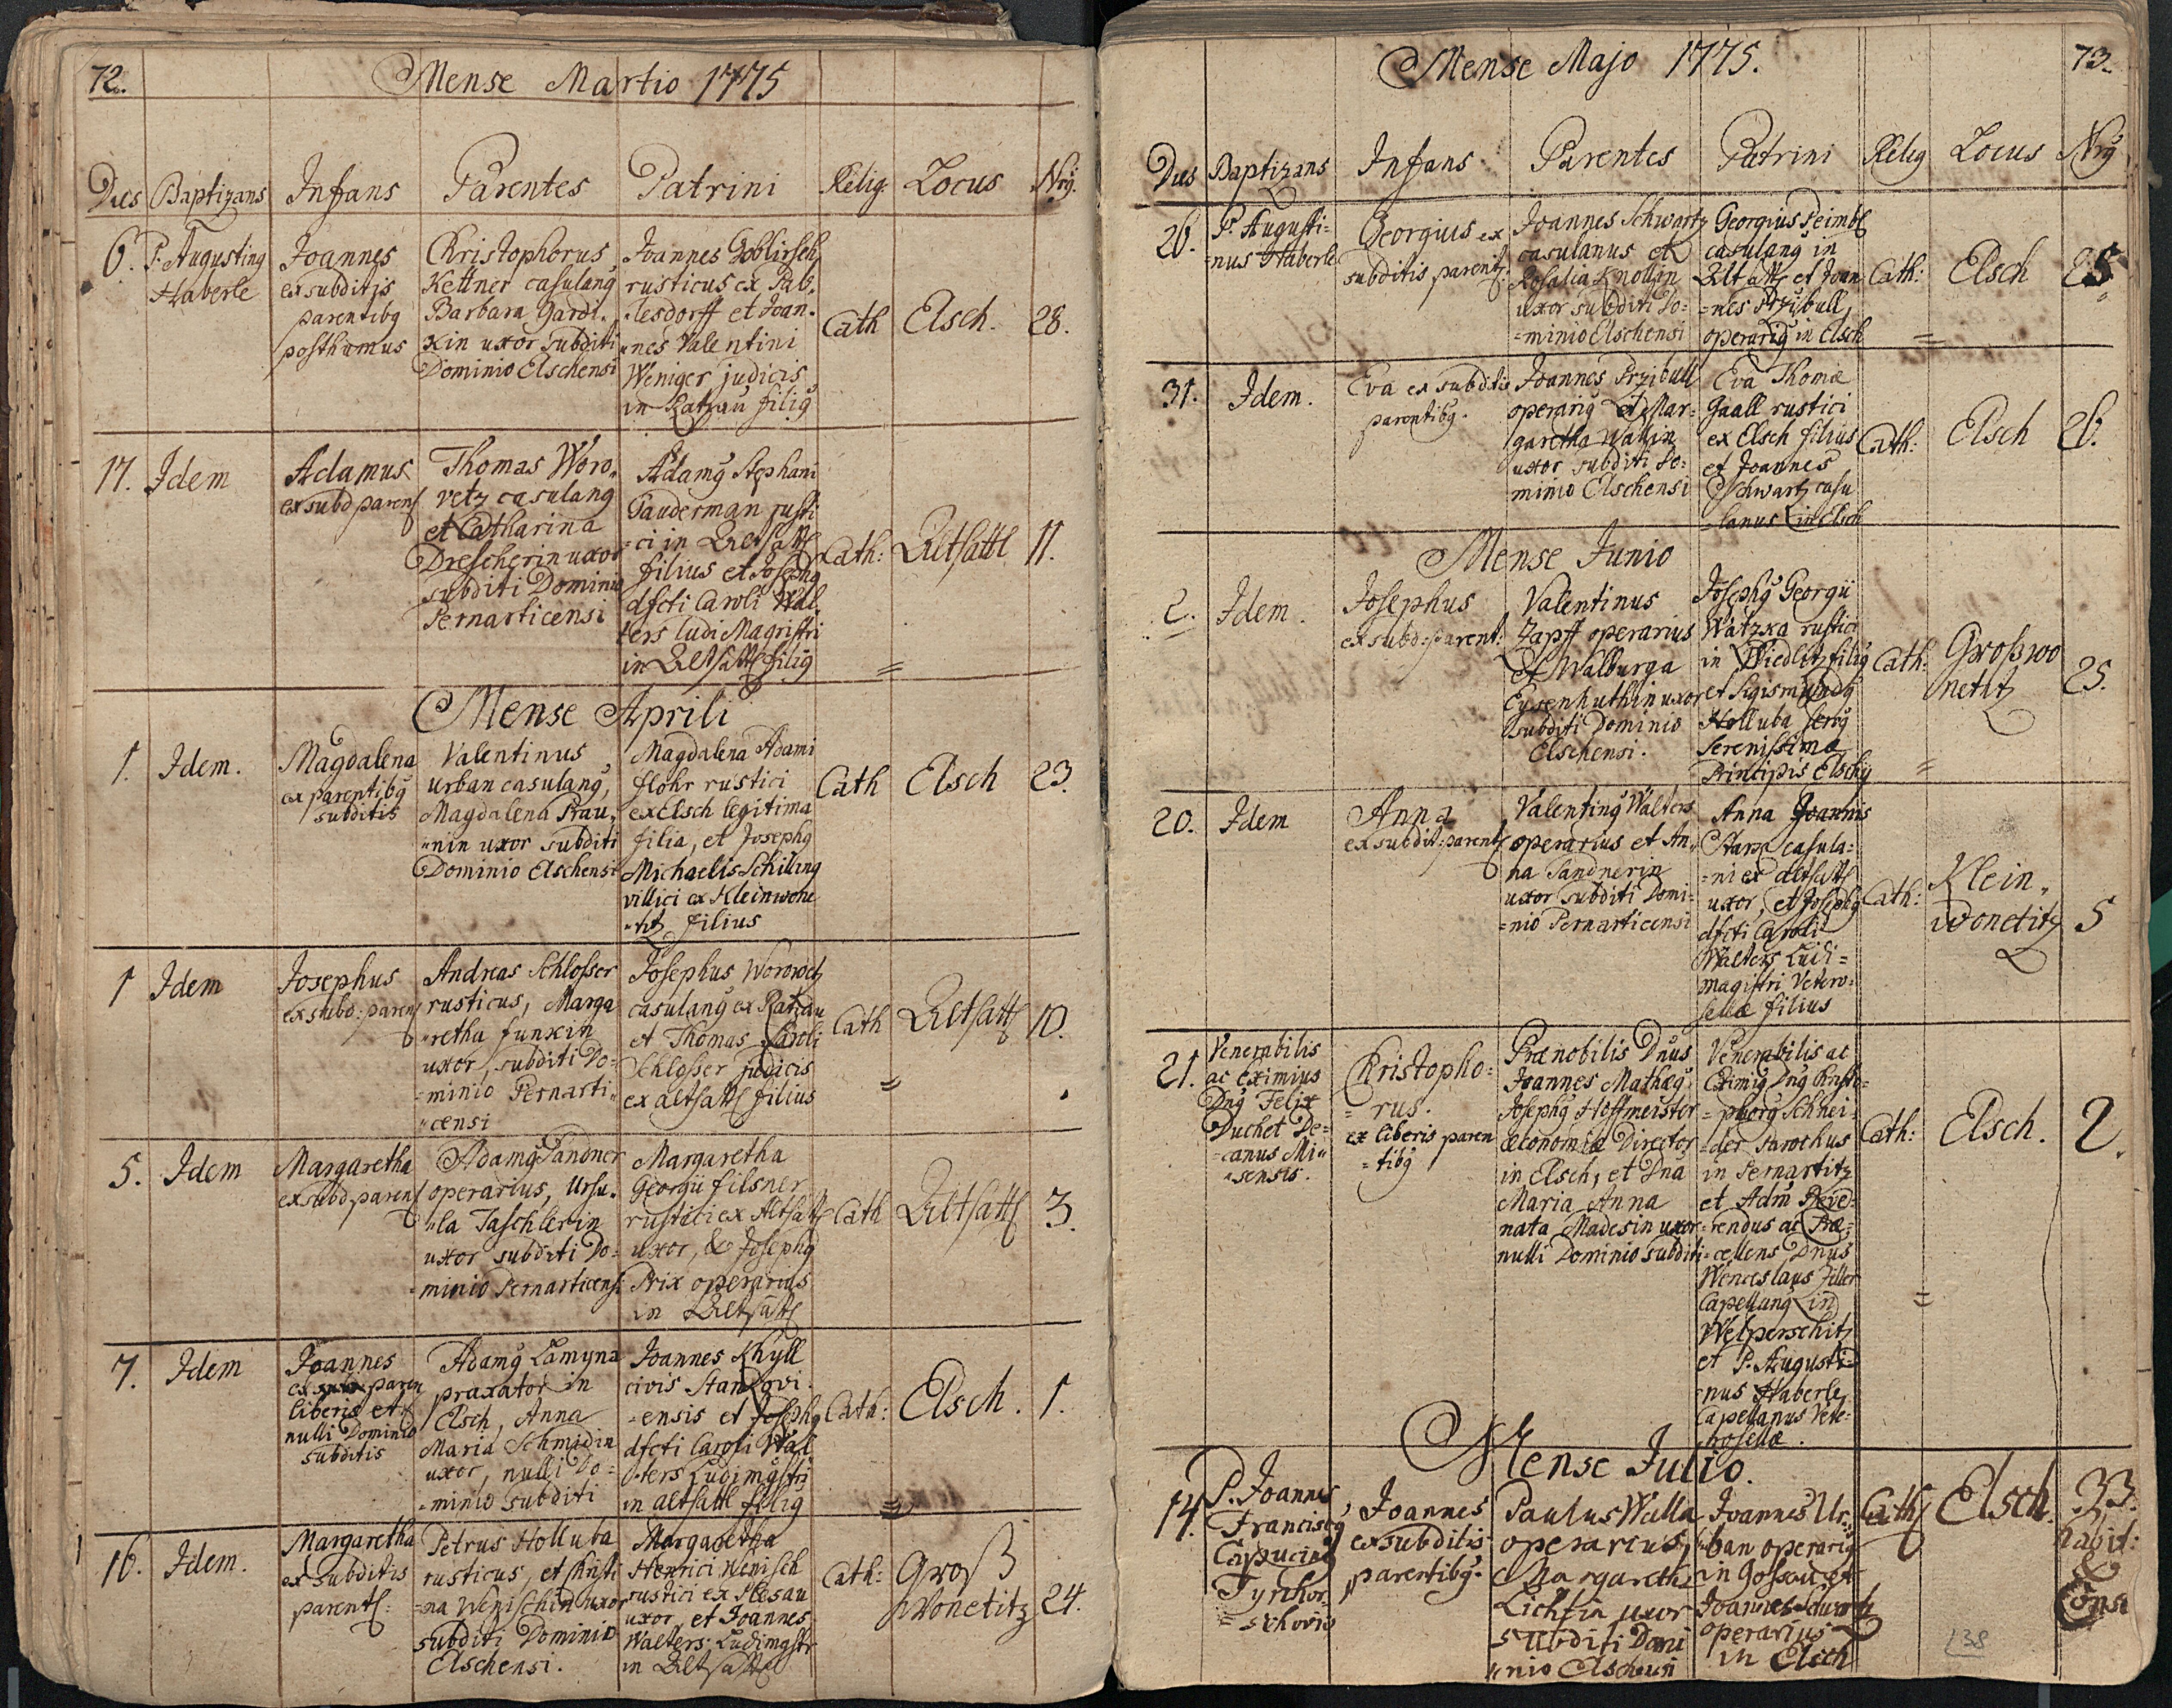 72.
Mense Martio 1775
Dies Baptizans Infans Parentes Patrini Relig. Locus Nrg.
6.
P. Augusting
Haberle
Joannes
ex subditis
parentibg
posthumus
Christophorus
Kettner casulang
Barbara Gardi.
xin uxor subditi
Dominio Elschensi
Joannes Goblirsch
rusticus ex Pab.
lesdorff et Joan.
nes Valentini
Weniger judicis
in Ratzau filig
Cath
Elsch.
28.
17.
Idem
Adamus
ex subd paren
Thomas Woro„
vetz casulang
et Catharina
Drescherin uxor
subditi Dominio
Pernarticensi
Adamg Stephani
Pauderman rusti
=ci in Altsattl
filius et Josephg
dfcti Caroli Wal
ters ludi Magistri
in Altsattl filig
Cath:
Altsattl
11.
Mense Aprili
1.
Idem.
Magdalena
ex parentibg
subditis
Valentinus
Urban casulang,
Magdalena Prau„
„nin uxor subditi
Dominio Elschensi
Magdalena Adami
flohr rustici
ex Elsch legitima
filia, et Josephg
Michaelis Schilling
villici ex Kleinwone
„titz filius
Cath
Elsch
23.
1
Idem
Josephus
ex subd: paren
Andreas Schlosser
rusticus, Marga
„retha funxin
uxor, subditi Do=
=minio Pernarti„
„censi
Josephus Worowetz
casulang ex Ratzau
et Thomas Caroli
Schlosser judicis
ex altsattl filius
Cath
Altsattl
10.
5.
Idem
Margaretha
ex subd paren
Adamg Tandner
operarius, Ursu.
„la Taschlerin
uxor subditi Do=
=minio Pernarticensi
Margaretha
Georgii filsner
rustici ex Altsattl
uxor, & Josephg
Prix operarius
in Altsattl
Cath
Altsattl
3.
7.
Idem
Joannes
paren
liberis et
nulli Dominio
subditis
Adamg Lamyna
praxator in
Elsch, Anna
Maria Schmidin
uxor, nulli Do=
=minio subditi
Joannes Khyll
civis Stankovi
=ensis et Josephg
dfcti Caroli Wal
ters Ludimgstri
in altsattl filig
Cath:
Elsch.
1.
16.
Idem.
Margaretha
ex subditis
parent:
Petrus Holluba
rusticus, et Christi
=na Wenischin uxor
subditi Dominio
Elschensi.
Margaretha
Henrici Wenisch
rustici ex Hesau
uxor, et Joannes
Walters Ludimgstr
in Altsattl
Cath:
Groß
Wonetitz
24.
Mense Majo 1775.
73.
Dies Baptizans Infans Parentes Patrini Relig Locus Nrg
26.
P. Augusti=
=nus Haberle
Georgius ex
subditis parentg
Joannes Schwartz
casulanus et
Rosalia Knollin
uxor subditi Do=
=minio Elschensi
Georgius Peimbl
casulang in
Altsattl et Joan
=nes Przibull
operarig in Elsch
Cath:
Elsch
25
31.
Idem.
Eva ex subditis
parentibg.
Joannes Przibull
operarig et Mar=
garetha Wallin
uxor subditi Do=
minio Elschensi
Eva Thomæ
Gaall rustici
ex Elsch filius
et Joannes
Schwartz casu
=lanus in Elsch
Cath:
Elsch
26.
Mense Junio
2.
Idem.
Josephus
ex subd: parent:
Valentinus
Zapff operarius
et Walburga
Eysenhuthin uxor
subditi Dominio
Elschensi.
Josephg Georgii
Watzka rustici
in Wiedlitz filig
et Sigismundg
Holluba servg
Serenissimæ
Principis Elschg
Cath:
Großwo
netitz
25.
20.
Idem
Anna
ex subdit: parent
Valenting Walters
operarius et An„
na Tandnerin
uxor subditi Domi=
=nio Pernarticensi
Anna Joannis
Starx casula=
=ni ex altsattl
uxor, et Josephg
dfcti Caroli
Walters Ludi=
magistri Vetero=
sellæ filius
Cath:
Klein„
wonetitz
5
21.
Venerabilis
ac Eximius
Dng Felix
Duchet De=
=canus Mi„
„sensis.
Christopho=
=rus.
ex liberis paren
=tibg
Prænobilis Dnus
Joannes Mathæg
Josephg Hoffmeister
œconomiæ Director
in Elsch, et Dna
Maria Anna
nata Madesin uxor
nulli Dominio subditi
Venerabilis ac
Eximig Dng Christo=
=phorg Schnei=
=der Parochus
in Pernartitz
et Adm Reve=
=rendus ac Præ=
=cellens Dnus
Wenceslaus Filler
Capellang in
Welperschitz
et P. Augusti=
=nus Haberle
Capellanus Vete=
rosellæ.
Cath:
Elsch.
2.
Mense Julio.
14.
P. Joannes
Franciscg
Capucing
Joannes
ex subditis
parentibg.
Paulus Walla
operarius,
Margaretha
Lichtin uxor
subditi Domi
„nio Elschensi
Joannes Ur=
ban operarig
in Gossau et
Joannes Schwartz
operarius
in Elsch
Cath
Elsch.
33.
habit:
&
Cons
138